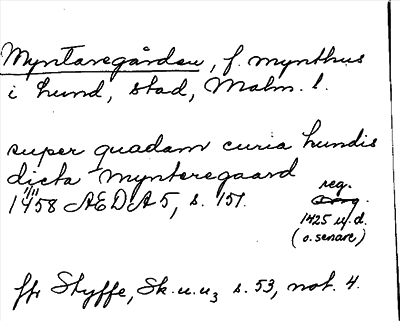 Myntaregården, f. mynthus
i Lund, stad, Malm. l.
super quadam curia lundis
dicta Mynteregaard
1458 AEDA 5, s. 151.
reg.
1425 u.d.
(o. senare)
jfr Styffe, Sk.u.u3 s. 53, not. 4.